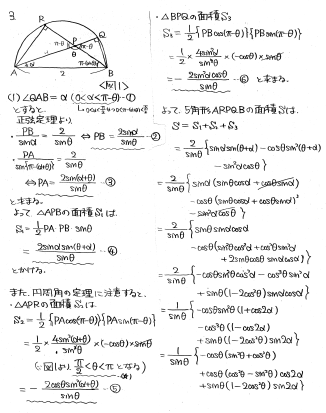 3.
R
Q
P
π-θ
θ
α
2
A
B
<図1>
(1) ∠QAB = α (0<α<π-θ) …①
とすると、
正弦定理より、
・PB/sinα = 2/sinθ ⇔ PB = 2sinα/sinθ …②
・PA/sin{π-(α+θ)} = 2/sinθ
⇔ PA = 2sin(α+θ)/sinθ …③
と求まる。
よって △APBの面積S₁は、
S₁ = 1/2 PA・PB・sinθ
= 2sinα sin(θ+α)/sinθ …④
とかける。
また、円周角の定理に注意すると、
・△APRの面積S₂は、
S₂ = 1/2 {PAcos(π-θ)}{PAsin(π-θ)}
= 1/2 × 4sin²(α+θ)/sin²θ × (-cosθ) × sinθ
(∵図1より、π/2<θ<πとなる)
= - 2cosθsin²(α+θ)/sinθ …⑤
・△BPQの面積S₃
S₃ = 1/2 {PBcos(π-θ)}{PBsin(π-θ)}
= 1/2 × 4sin²α/sin²θ × (-cosθ) × sinθ
= - 2sin²αcosθ/sinθ …⑥ と求まる。
よって、5角形ARPQBの面積Sは、
S = S₁+S₂+S₃
= 2/sinθ {sinαsin(θ+α) - cosθsin²(θ+α)
- sin²αcosθ}
= 2/sinθ {sinα(sinθcosα + cosθsinα)
- cosθ(sinθcosα + cosθsinα)²
- sin²αcosθ}
= 2/sinθ {sinθsinαcosα
- cosθ(sin²θcos²α + cos²θsin²α
+ 2sinθcosθsinαcosα)}
= 2/sinθ {-cosθsin²θcos²α - cos³θsin²α
+ sinθ(1-2cos²θ)sinαcosα}
= 1/sinθ {-cosθsin²θ(1+cos2α)
- cos³θ(1-cos2α)
+ sinθ(1-2cos²θ)sin2α}
= 1/sinθ {-cosθ(sin²θ+cos²θ)
+ cosθ(cos²θ-sin²θ)cos2α
+ sinθ(1-2cos²θ)sin2α}